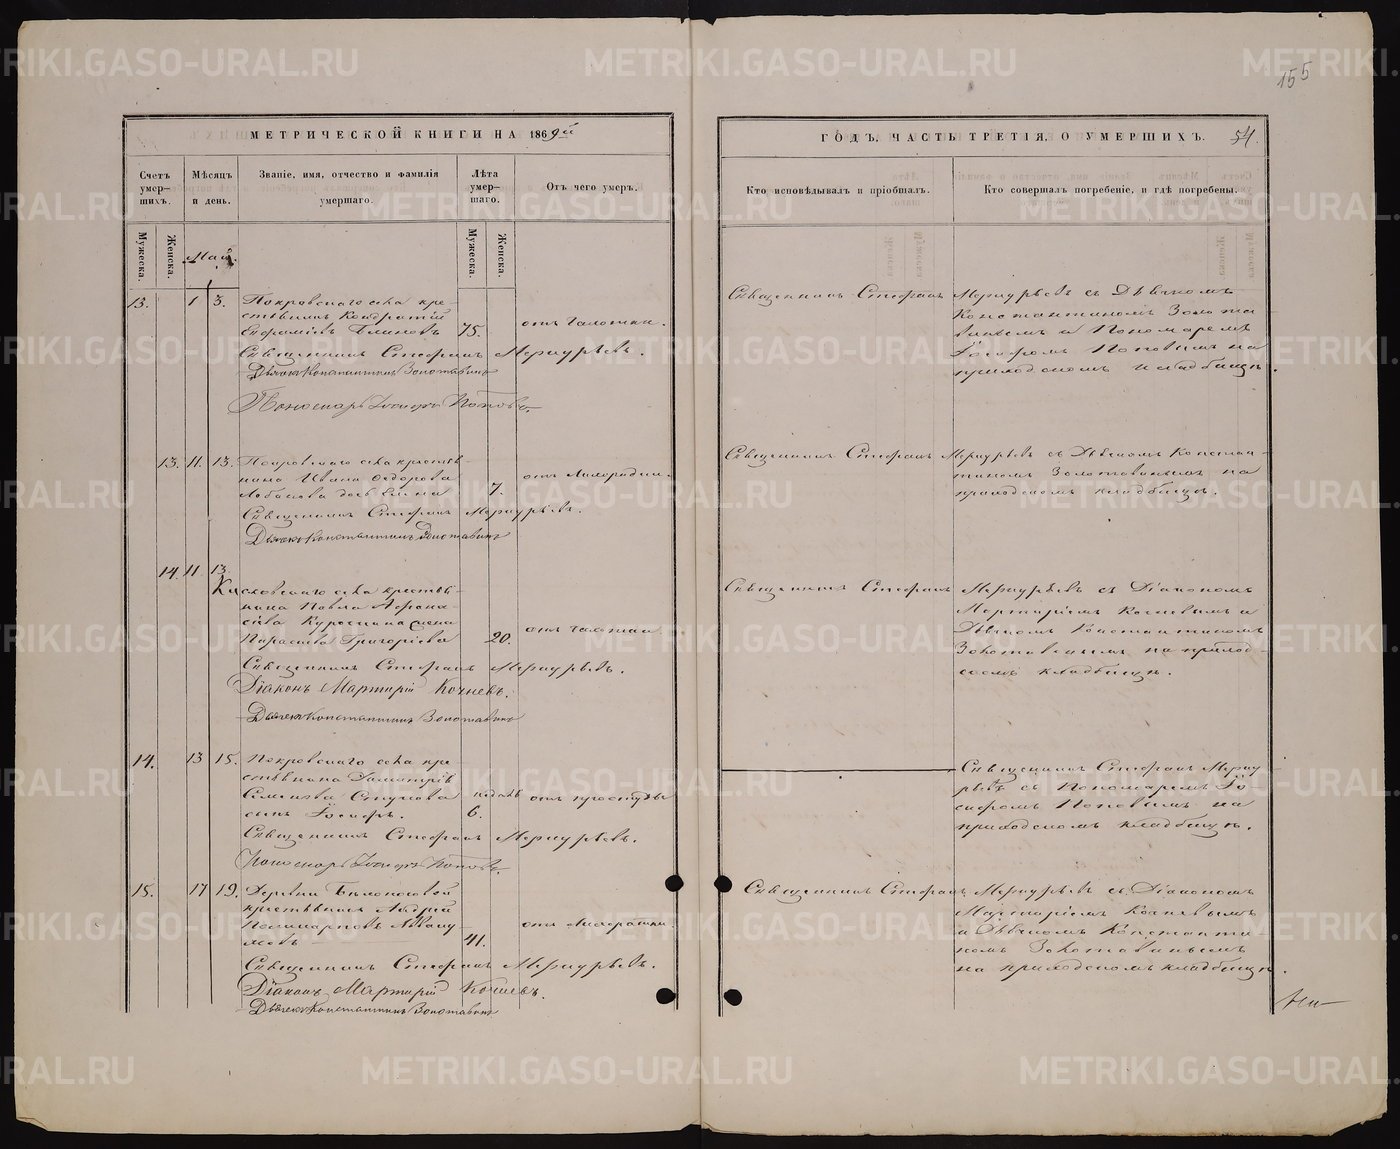 155
МЕТРИЧЕСКОЙ КНИГИ НА 1869й
ГОДЪ, ЧАСТЬ ТРЕТІЯ, О УМЕРШИХЪ.
54.
Счетъ умер-шихъ.
Мѣсяцъ и день.
Званіе, имя, отчество и фамилія умершаго.
Лѣта умер-шаго.
Отъ чего умеръ.
Кто исповѣдывалъ и пріобщалъ.
Кто совершалъ погребеніе, и гдѣ погребены.
Мужеска.
Женска.
Май.
Мужеска.
Женска.
13. 1 3. Покровскаго села кре-
стьянинъ Кондратій
75.
отъ чахотки.
Священникъ Стефанъ Меркурьевъ.
Дьячекъ Константинъ Золотавинъ
Пономарь Іосифъ Поповъ.
Священникъ Стефанъ Меркурьевъ съ Дьячкомъ
Константиномъ Золота-
винымъ и Пономаремъ
Іосифомъ Поповымъ на
приходскомъ кладбищѣ.
13. 11. 13. Покровскаго села крестья-
нина Ивана Ѳедорова
7.
отъ лихорадки.
Священникъ Стефанъ Меркурьевъ.
Дьячекъ Константинъ Золотавинъ
Священникъ Стефанъ Меркурьевъ съ Дьячкомъ Констан-
тиномъ Золотавинымъ на
приходскомъ кладбищѣ.
14. 11. 13.
села крестья-
нина Павла Афана-
сьева жена
Параскева Григорьева
20.
отъ чахотки
Священникъ Стефанъ Меркурьевъ.
Діаконъ Мартирій Кочневъ.
Дьячекъ Константинъ Золотавинъ
Священникъ Стефанъ Меркурьевъ съ Діакономъ
Мартиріемъ Кочневымъ и
Дьячкомъ Константиномъ
Золотавинымъ на приход-
скомъ кладбищѣ.
14. 13 15. Покровскаго села кре-
стьянина Димитрія
Семенова
сынъ Іосифъ.
недѣль
6.
отъ простуды
Священникъ Стефанъ Меркурьевъ.
Пономарь Іосифъ Поповъ.
Священникъ Стефанъ Мерку-
рьевъ съ Пономаремъ Іо-
сифомъ Поповымъ на
приходскомъ кладбищѣ.
15. 17 19. Деревни Бѣлоносовой
крестьянинъ Андрей
Поликарповъ Аваку-
мовъ
41.
отъ лихорадки.
Священникъ Стефанъ Меркурьевъ.
Діаконъ Мартирій Кочневъ.
Дьячекъ Константинъ Золотавинъ
Священникъ Стефанъ Меркурьевъ съ Діакономъ
Мартиріемъ Кочневымъ
и Дьячкомъ Константи-
номъ Золотавинымъ
на приходскомъ кладбищѣ.
METRIKI.GASO-URAL.RU